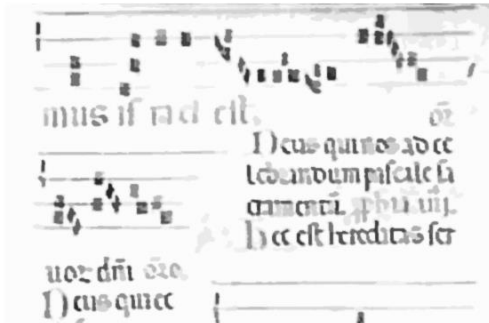 mus iſ rael eſt. oẽ
Deus qui nos ad ce
lebrandum paſcale ſa
cramentũ. pſalmi iiij.
hec eſt hereditas ſer
uoꝝ dñi oẽo.
Deus qui ec